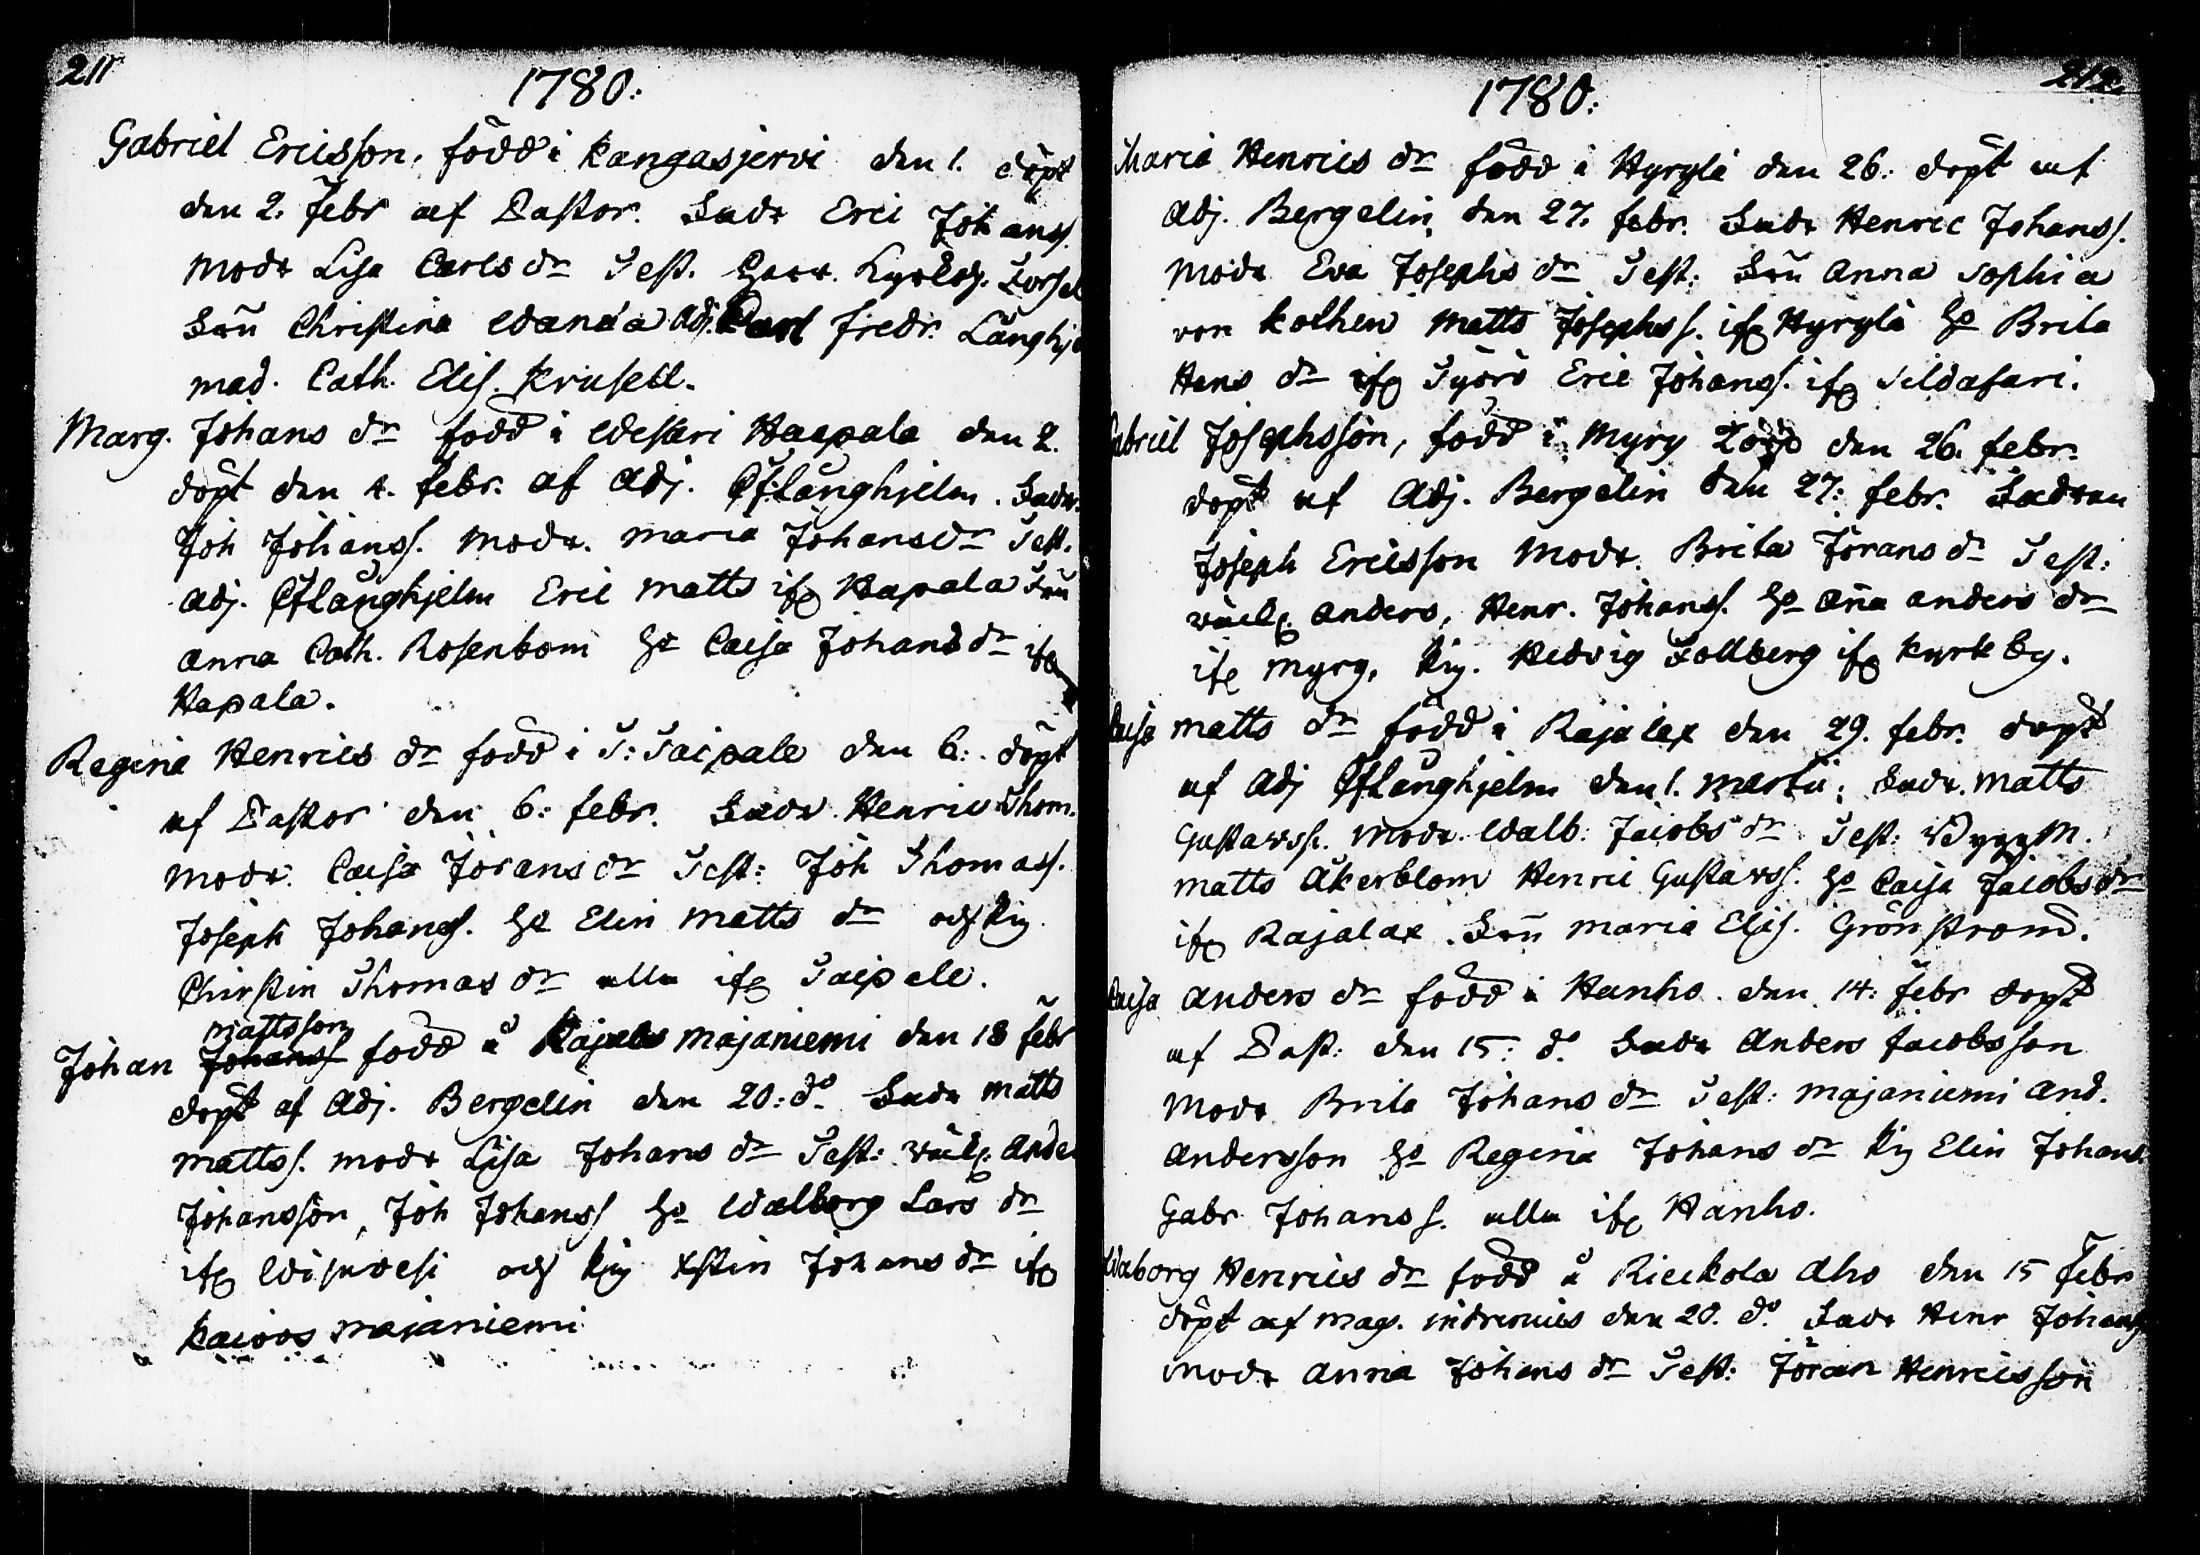 211
1780.
Gabriel Ericsson, född i Kangasjervi den 1. döpt
den 2. Febr af Pastor. Fadr Eric Johanss.
Modr Lisa Carls dr Test. Kyrkoh.
Fru Christina Adj. Carl Fredr. Långhje
Mad. Cath. Elis. Krusell.
Marg. Johans dr född i Wesari Haapala den 2.
döpt den 4. Febr. af Adj. CfLånghjelm. Fadr.
Joh Johanss. Modr. Maria Johansdr Test.
Adj. CfLånghjelm Eric Matts ifr Hapala Fru
Anna Cath. Rosenbom Ho Caisa Johans dr ifr
Hapala.
Regina Henrics dr född i T: Taipale den 6: döpt
af Pastor den 6: Febr. Fadr. Henric Thom.
Modr. Caisa Jörans dr Test: Joh Thomass.
Joseph Johanss. Ho Elin Matts dr och Pig
Christin Thomas dr alla ifr Taipale.
Mattsson
Johan Johanss född å Majaniemi den 18 Febr
döpt af Adj. Bergelin den 20: do. Fadr Matts
Mattss. Modr Lisa Johans dr Test: Ande
Johansson, Joh Johanss Ho Walborg Lars dr
ifr och Pig Xstin Johans dr ifr
Majaniemi
212.
1780:
Maria Henrics dr född i Hyrylä den 26: döpt af
Adj. Bergelin, den 27. Febr. Fadr Henric Johanss.
Modr Eva Josephs dr Test: Fru Anna Sophia
von Kothen Matts Josephss. ifr Hyrylä Ho Brita
Hens dr ifr Eric Johanss. ifr Sildasari.
Gabriel Josephsson, född i Myry Torp den 26. Febr.
döpt af Adj. Bergelin den 27: Febr. Fadren
Joseph Ericsson Modr. Brita Jörans dr Test:
Anders, Henr. Johanss. Ho Aña Anders dr
ifr Myry, Pig. Hedvig Follberg ifr Kyrkby.
Caisa Matts dr född i Rajalax den 29. Febr. döpt
af Adj CfLånghjelm den 1. Martii. Fadr. Matts
Gustavss. Modr. Walb: Jacobs dr Test: ByggM.
Matts Åkerblom Henric Gustavss. Ho Caisa Jacobs dr
ifr Rajalax. Fru Maria Elis. Grönstrand.
Caisa Anders dr född i Hanho den 14: Febr döpt
af Past: den 15: do. Fadr Anders Jacobsson
Modr Brita Johans dr Test: Majaniemi And.
Andersson Ho Regina Johans dr Pig Elin Johans
Gabr Johanss. alla ifr Hanho.
Walborg Henrics dr född å Rieckola Aho den 15 Febr
döpt af Mag. Indrenius den 20. do. Fadr Henr Johanss
Modr Anna Johans dr Test: Jöran Henricsson